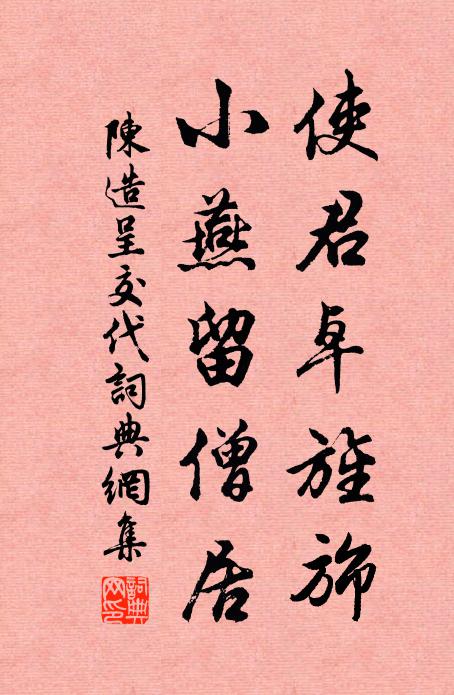 使君卓旌旆
小燕留僧居
陳造呈交代詞典網集
詞典網印